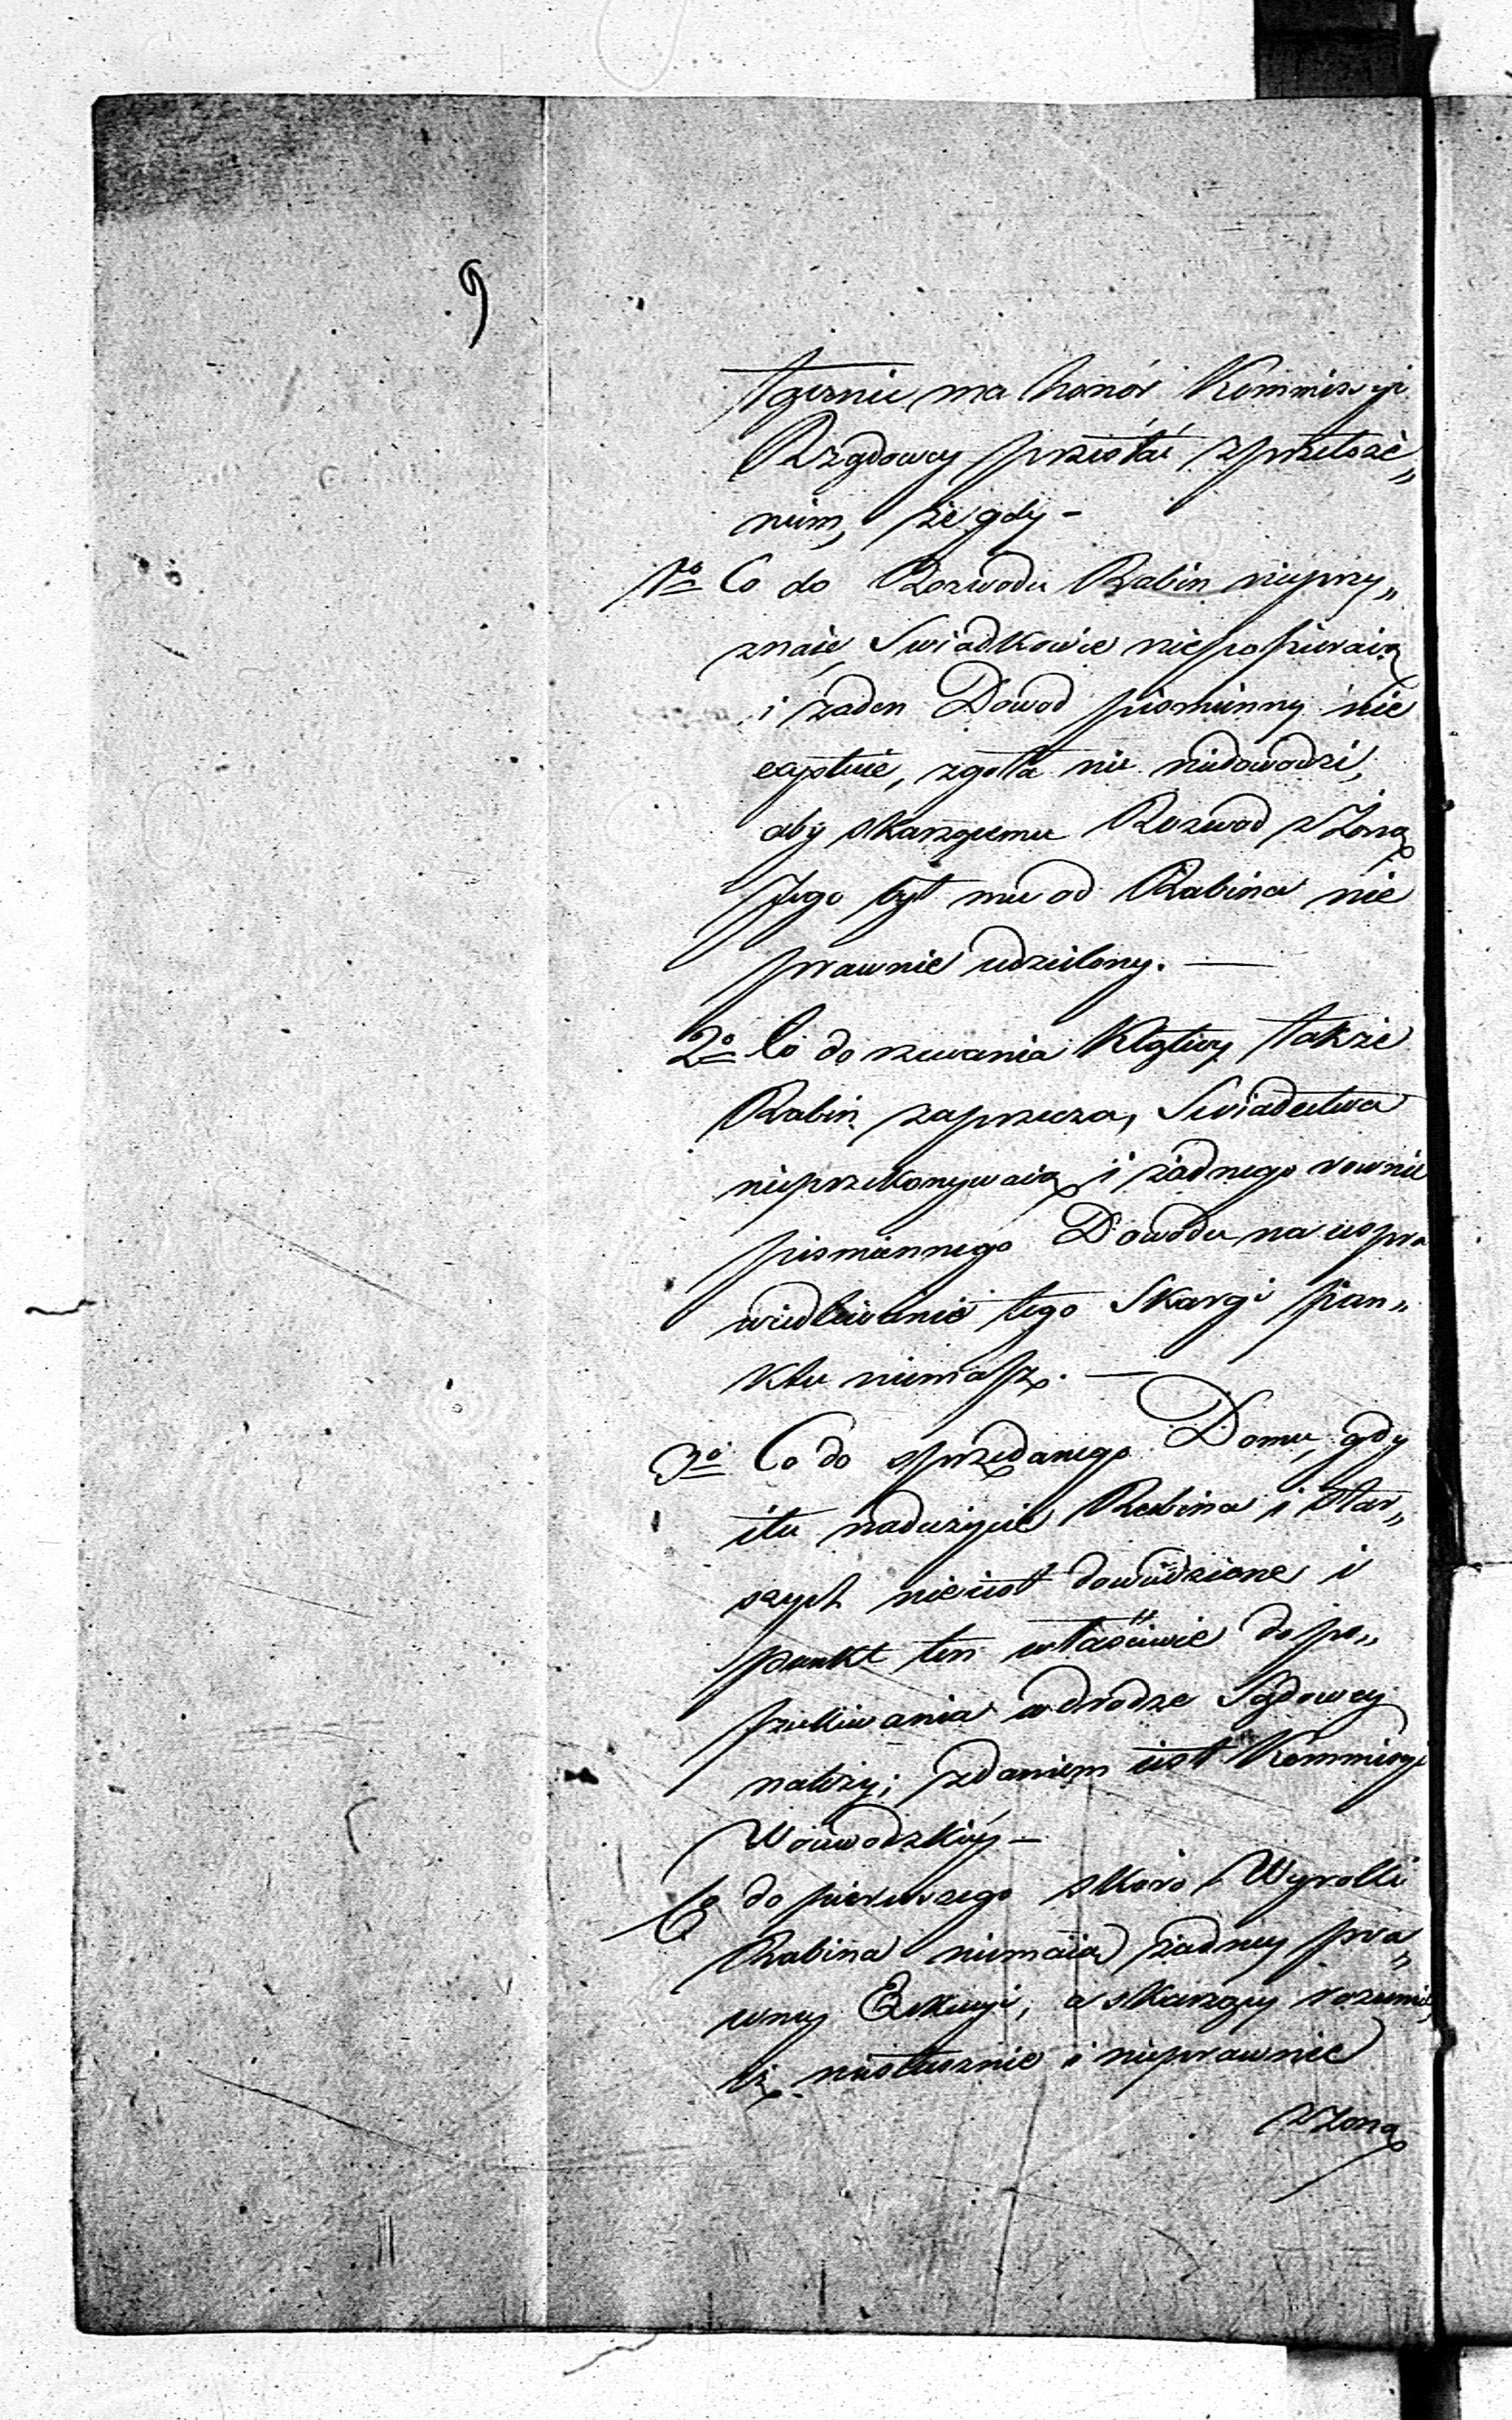 9
łącznie ma honór Kommissyi
Rządowey przesłać z przełoże„
niem, że gdy –
1º Co do Rozwodu Rabin nieprzy„
znaie, Swiadkowie niepopieraią
i żaden Dowod piśmienny nie
exystuie, zgoła nic niedowodzi,
aby skarzącemu Rozwod z Żoną
Jego był mu od Rabina nie
prawnie udzielony. —
2º Co do rzucania Klątwy także
Rabin zaprzecza, Swiadectwa
nieprzekonywaią i żadnego rownie
pismiennego Dowodu na uspra
wiedliwienie tego Skargi pun„
ktu niemasz. —
3º Co do sprzedanego Domu, gdy
i tu nadużycie Rabina i Star„
szych nieiest dowiedzione i
punkt ten właściwie do po„
szukiwania w drodze Sądowey
należy; zdaniem iest Kommissyi
Woiewodzkiey –
Co do pierwszego skoro Wyroki
Rabina niemaią żadney pra„
wney Exekucyi, a skarzący rozumie,
iż niesłusznie i nieprawnie
z Żoną